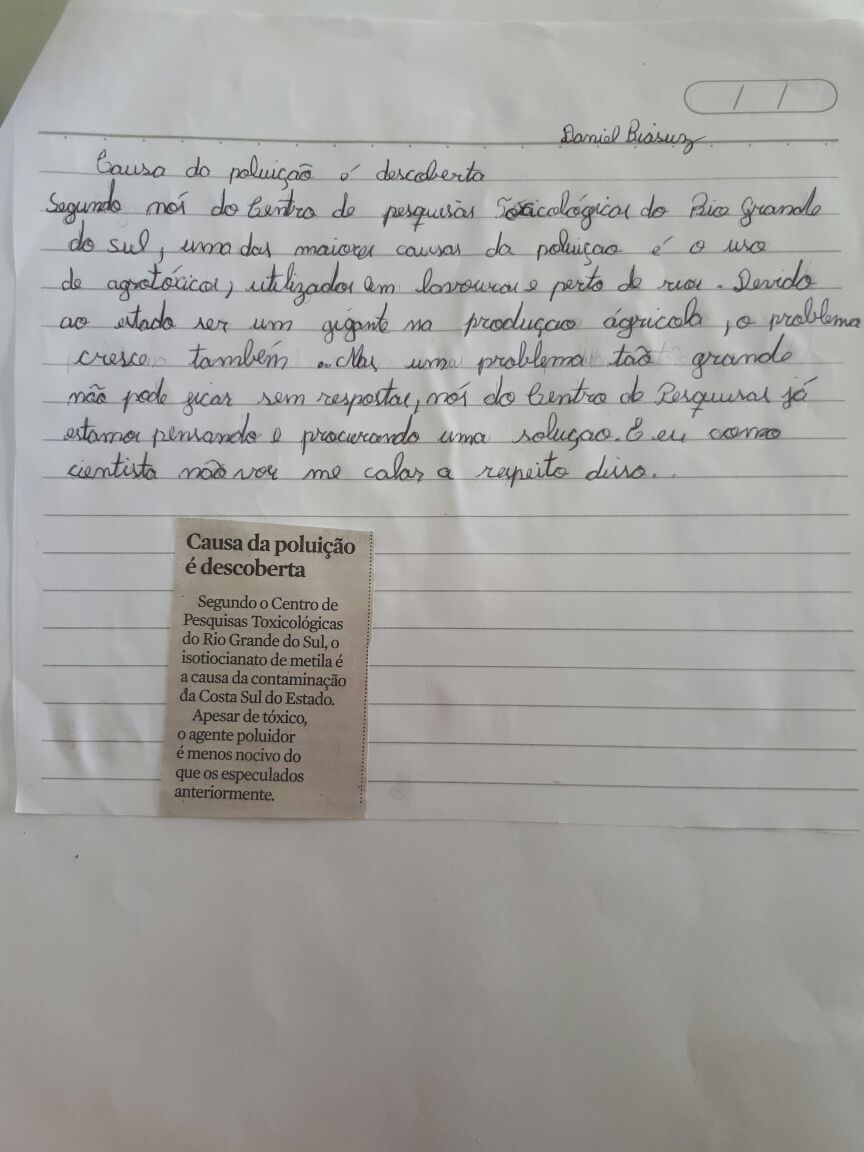 Daniel Biasuz
Causa da poluição é descoberta
Segundo nós do Centro de pesquisas Toxicológicas do Rio Grande
do sul, uma das maiores causas da poluiçao é o uso
de agrotóxicos, utilizados em lavouras e perto de rios. Devido
ao estado ser um gigante na produçao ágricola, o problema
cresce também. Mas uma problema tão grande
não pode ficar sem respostas, nós do Centro de Pesquisas já
estamos pensando e procurando uma soluçao. E eu como
cientista não vou me calar a respeito disso..
Causa da poluição
é descoberta
Segundo o Centro de
Pesquisas Toxicológicas
do Rio Grande do Sul, o
isotiocianato de metila é
a causa da contaminação
da Costa Sul do Estado.
Apesar de tóxico,
o agente poluidor
é menos nocivo do
que os especulados
anteriormente.